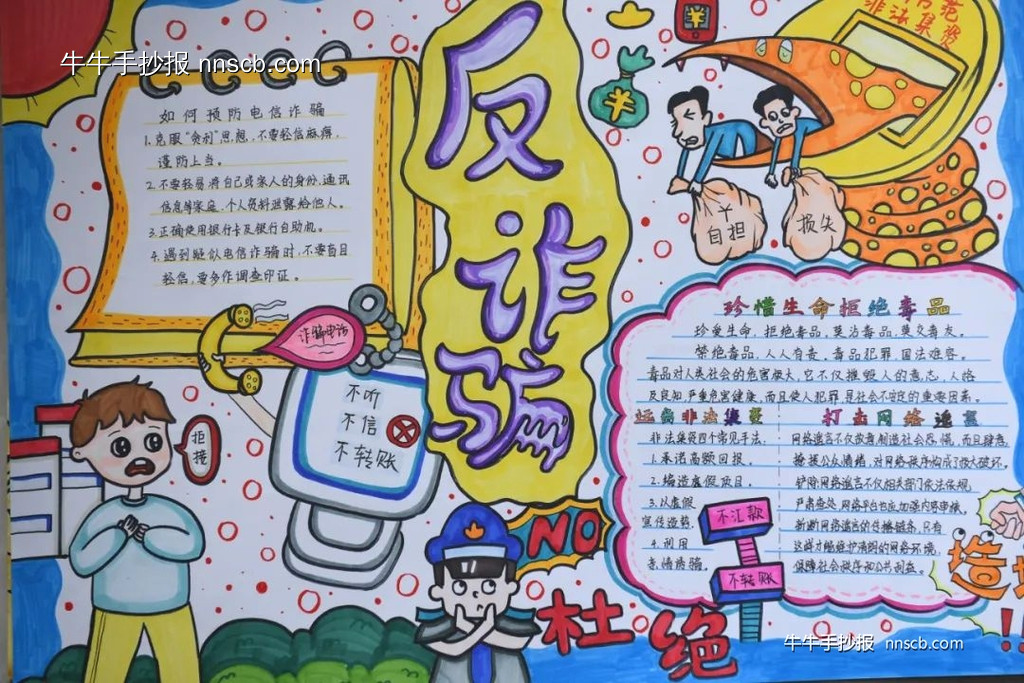 牛牛手抄报 nnscb.com
如何预防电信诈骗
1.克服“贪利”思想,不要轻信麻痹,
谨防上当。
2.不要轻易将自己或家人的身份、通讯
信息等家庭、个人资料泄露给他人。
3.正确使用银行卡及银行自助机。
4.遇到疑似电信诈骗时,不要盲目
轻信,要多作调查印证。
反诈骗
非法集资
自担
损失
诈骗电话
不听
不信
不转账
拒接
NO
杜绝
珍惜生命拒绝毒品
珍爱生命,拒绝毒品,莫沾毒品,莫交毒友。
禁绝毒品,人人有责,毒品犯罪,国法难容。
毒品对人类社会的危害极大,它不仅摧毁人的意志、人格
及良知,严重危害健康,而且使人犯罪,是社会不安定的重要因素。
远离非法集资
非法集资四个常见手法:
1.承诺高额回报。
2.编造虚假项目。
3.以虚假
宣传造势。
4.利用
亲情诱骗。
打击网络谣言
网络谣言不仅故意制造社会恐慌,而且肆意
操控公众情绪,对网络秩序构成了极大破坏。
铲除网络谣言不仅相关部门依法依规
严肃查处,网络平台也应加强内容审核,
斩断网络谣言的传播链条,只有
这样才能维护清朗的网络环境,
保障社会秩序和公共利益。
不汇款
不转账
造
!!
牛牛手抄报 nnscb.com